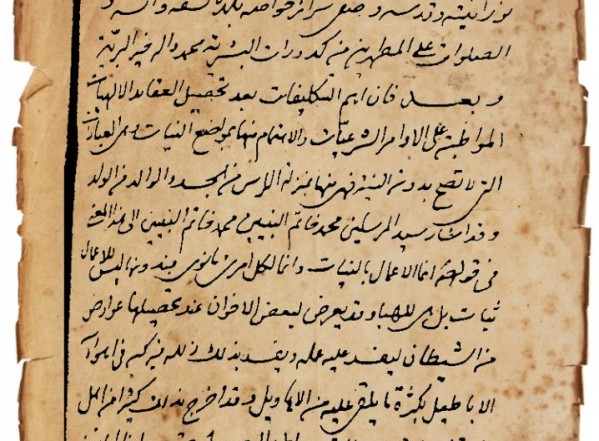 نورانيته وقدسه وصفى سرائر خواصه
الصلوات على المطهرين من كدورات البشرية محمد واله خير البرية
وبعد فان اهم التكليفات بعد تحصيل العقايد الالهيات
المواظبة على الاوامر الشرعيات والاهتمام منها بمواضع النيات وهى العبادات
التى لا تصح بدون النية فهى منها بمنزلة الراس من الجسد والوالد من الولد
وقد اشار سيد المرسلين محمد خاتم النبيين محمد خاتم النبيين الى هذا المعنى
فى قوله انما الاعمال بالنيات وانما لكل امرئ ما نوى فبدونها ليس للاعمال
ثبات بل هى للهباء وقد يعرض لبعض الاخوان عند تحصيلها عوارض
من الشيطان ليفسد عليه عمله ويفسد بذلك فى اهواء
الاباطيل بكثرة ما يلقى عليه من الاقاويل وقد اخرج بذلك كثيرا من اهل